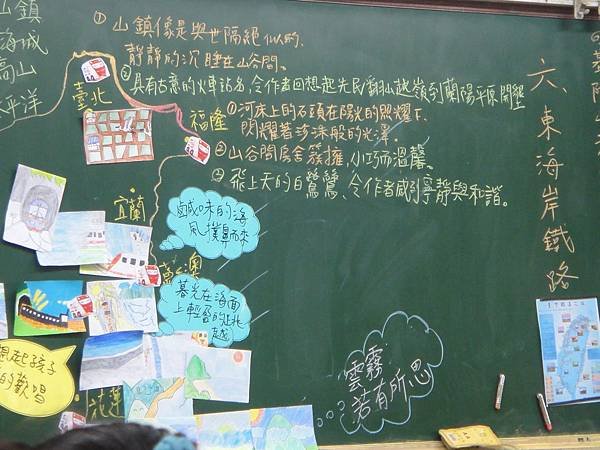 山鎮
海城
高山
太平洋
①山鎮像是與世隔絕似的,
靜靜的沉睡在山谷間。
②具有古意的火車站名,令作者回想起先民翻山越嶺到蘭陽平原開墾
臺北
福隆
①河床上的石頭在陽光的照耀下,
閃耀著珍珠般的光澤。
②山谷間房舍簇擁,小巧而溫馨。
③飛上天的白鷺鷥、令作者感到寧靜與和諧。
宜蘭
鹹味的海
風撲鼻而來
蘇澳
暮光在海面
上輕盈的跳
越
想起孩子
的歡唱
花蓮
雲霧
若有所思
六、東海岸鐵路